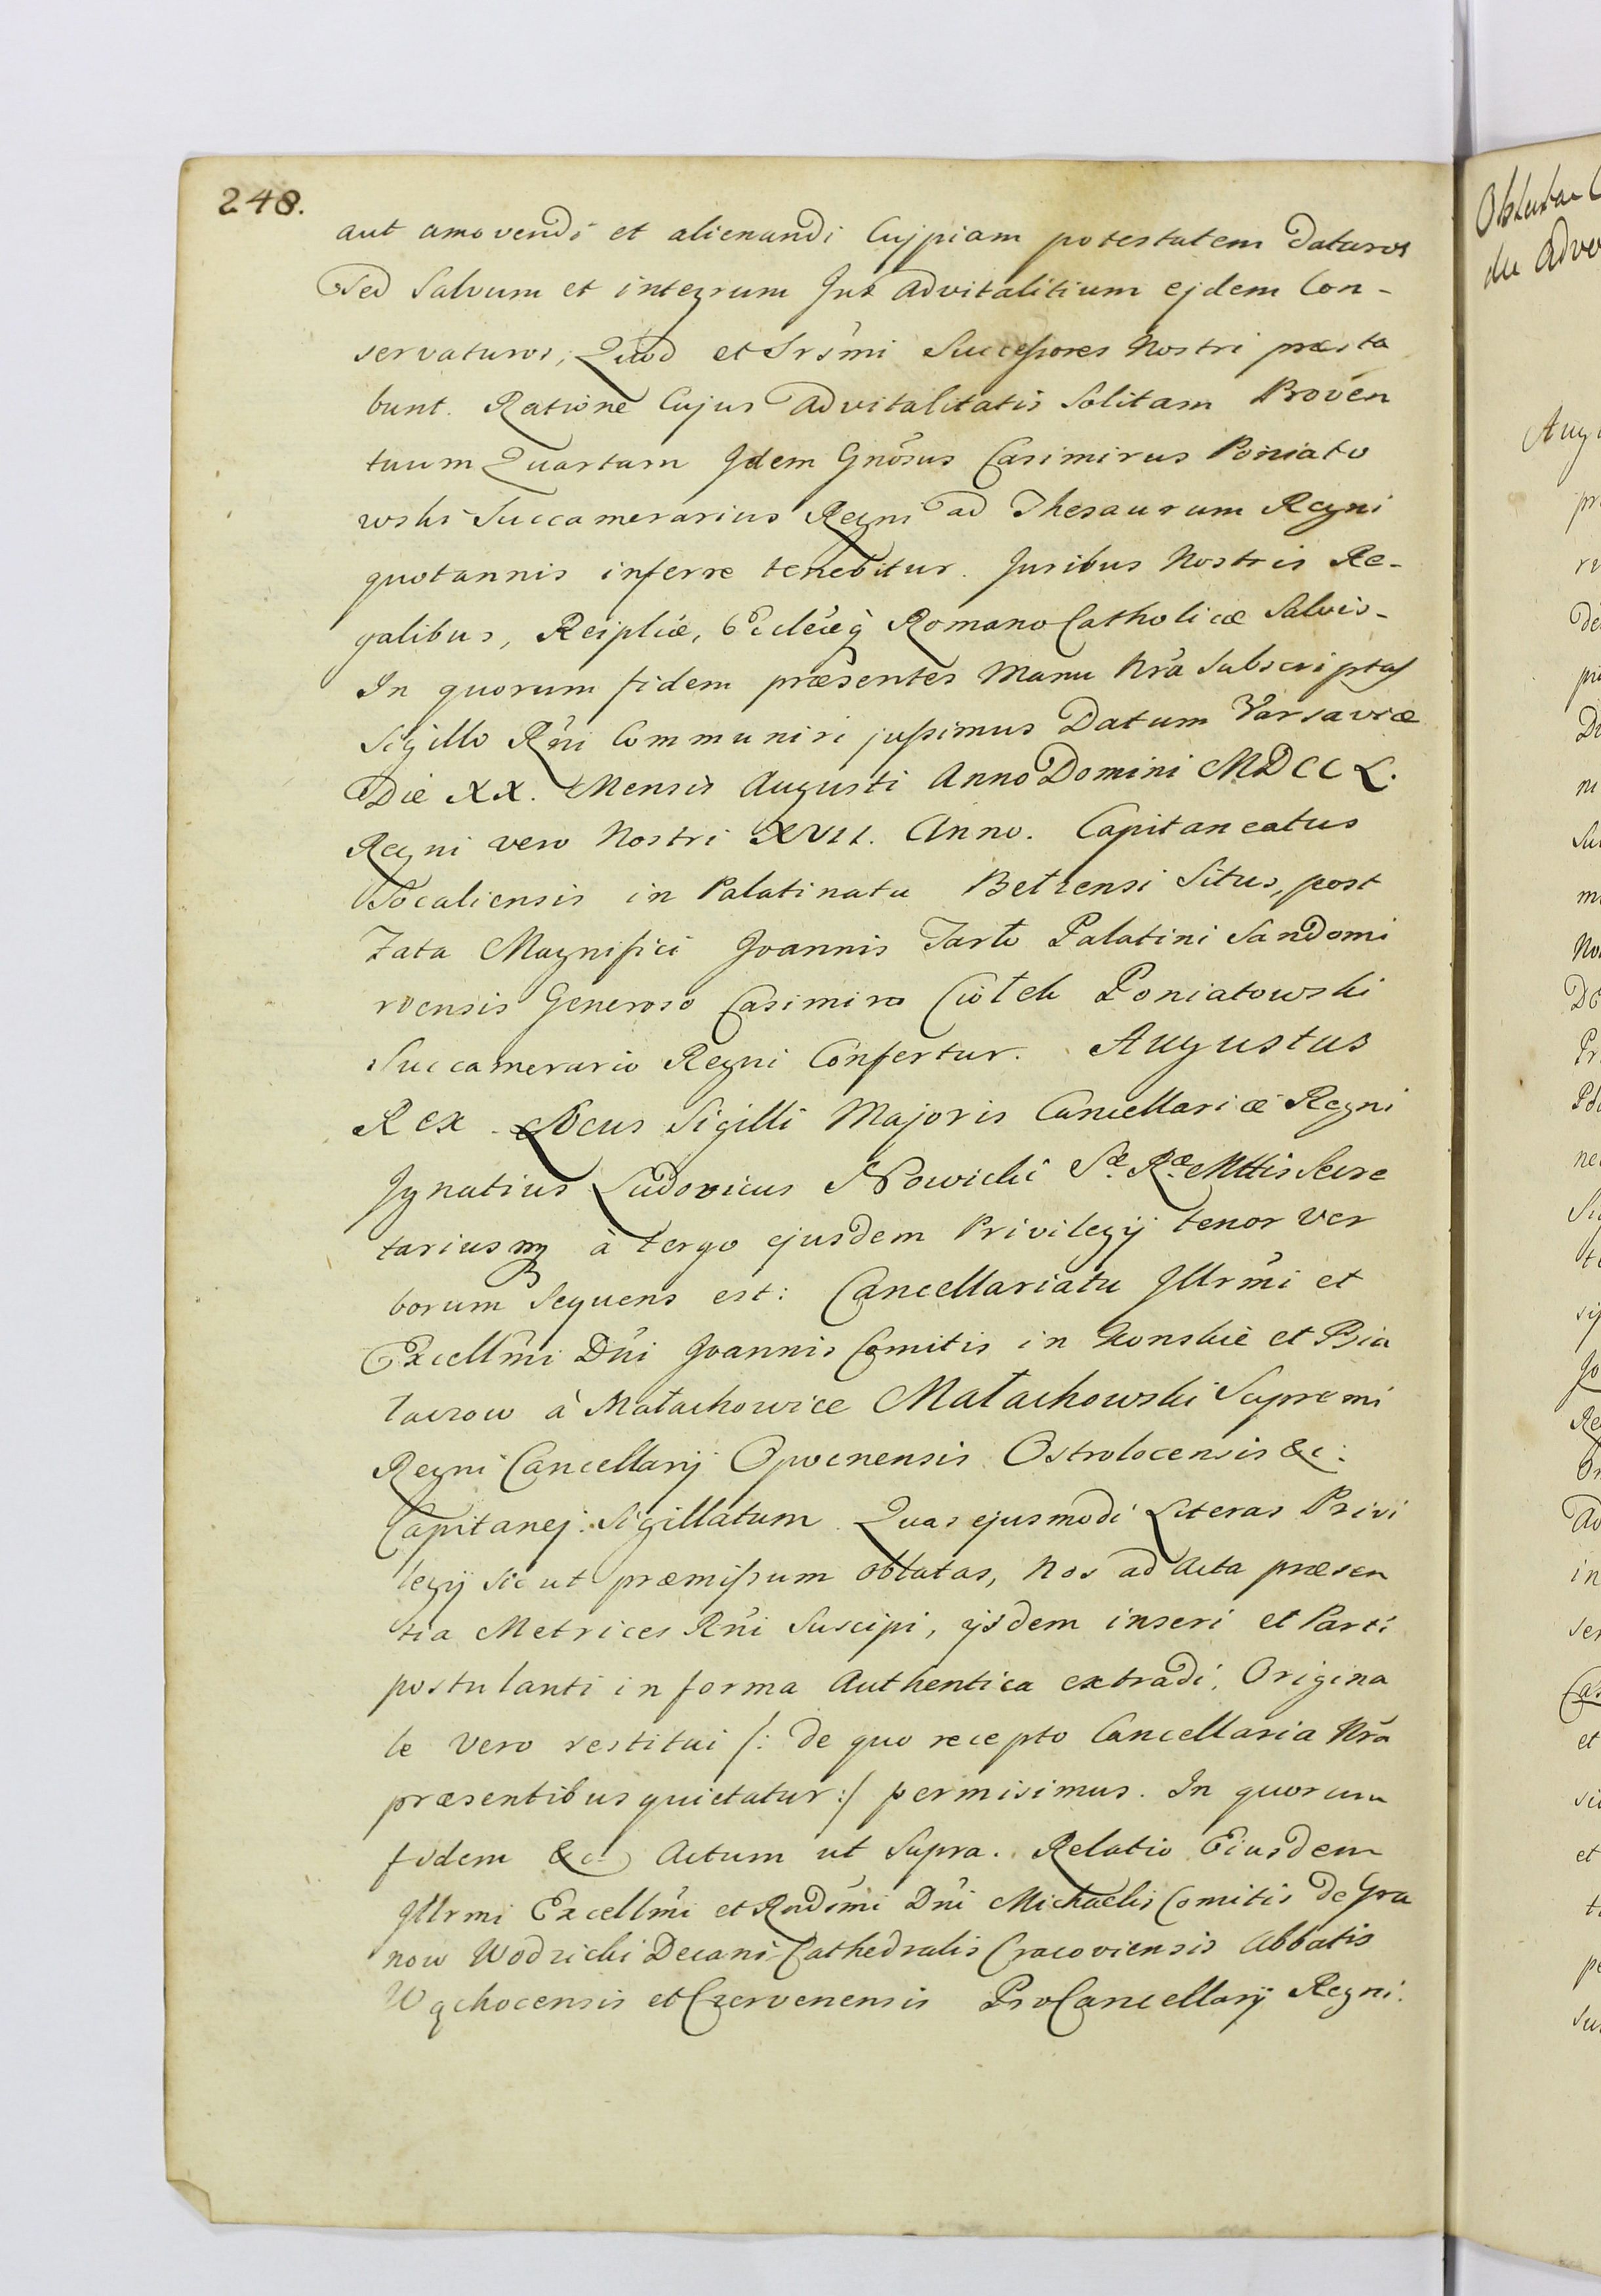 248.
aut amovendi et alienandi Cujpiam potestatem Daturos
Sed Salvum et integrum Jus Advitalitium ejdem Con-
servaturos, Quod et Srs̃mi Successores Nostri præsta
bunt. Ratione Cujus Advitalitatis Solitam Proven
tuum Quartam Idem Gnõsus Casimirus Poniato
wski Succamerarius Regni ad Thesaurum Regni
quotannis inferre tenebitur. Juribus Nostris Re-
galibus, Reiplicæ, Eccleæq̀ Romano Catholicæ Salvis-
In quorum fidem præsentes Manu Nrã Subscriptas
Sigillo Rñi Communiri jussimus Datum Varsaviæ
Die XX. Mensis Augusti Anno Domini MDCCL.
Regni vero Nostri XVII. Anno. Capitaneatus
Socaliensis in Palatinatu Betzensi Situs, post
Fata Magnifici Joannis Tarło Palatini Sandomi
riensis Generoso Casimiro Ciołek Poniatowski
Succamerario Regni Confertur. Augustus
Rex. Locus Sigilli Majoris Cancellariæ Regni
Ignatius Ludovicus Nowicki Sæ Ræ Mttis Secre
tarius mp à tergo ejusdem Privilegij tenor ver
borum Sequens est: Cancellariatu Illrmi et
Excellmi Dñi Joannis Comitis in Konskie et Bia
łaczow à Małachowice Małachowski Supremi
Regni Cancellarij Opocnensis Ostrolocensis &c:
Capitanej: Sigillatum Quas ejusmodi Literas Privi
legij sic ut præmissum oblatas, Nos ad Acta præsen
tia Metrices Rñi Suscipi, ijsdem inseri et Parti
postulanti in forma Authentica extradi, Origina
le Vero restitui /: de quo recepto Cancellaria Nrã
præsentibus quietatur :/ permisimus. In quorum
fidem &c Actum ut Supra. Relatio Eiusdem
Illrmi Excellmi et Rndsmi Dñi Michaelis Comitis de Gra
now Wodzicki Decani Cathedralis Cracoviensis Abbatis
Wąchocensis et Czervenensis ProCancellarij Regni.
Augu